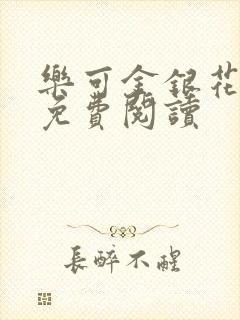 樂可金銀花
免費閱讀
長醉不醒